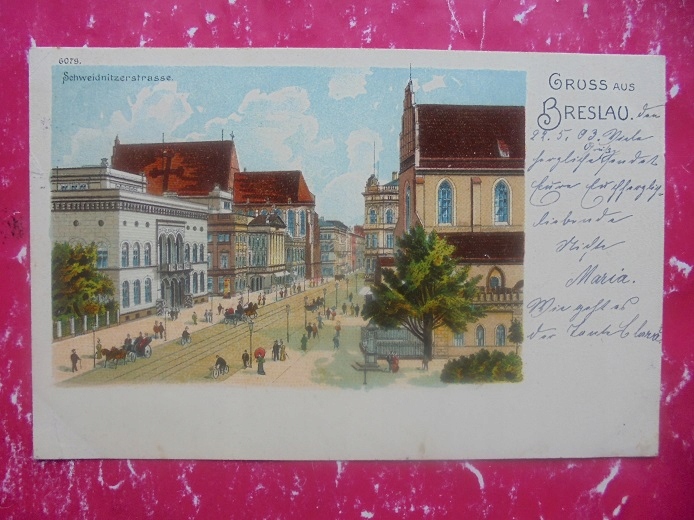 6079.
Schweidnitzerstrasse.
GRUSS AUS
BRESLAU. den
22.5.03. Viele
herzliche Grüße sendet
Eure Euch herzlich
liebende
Nichte
Maria.
Wie geht es
der Tante Clara?